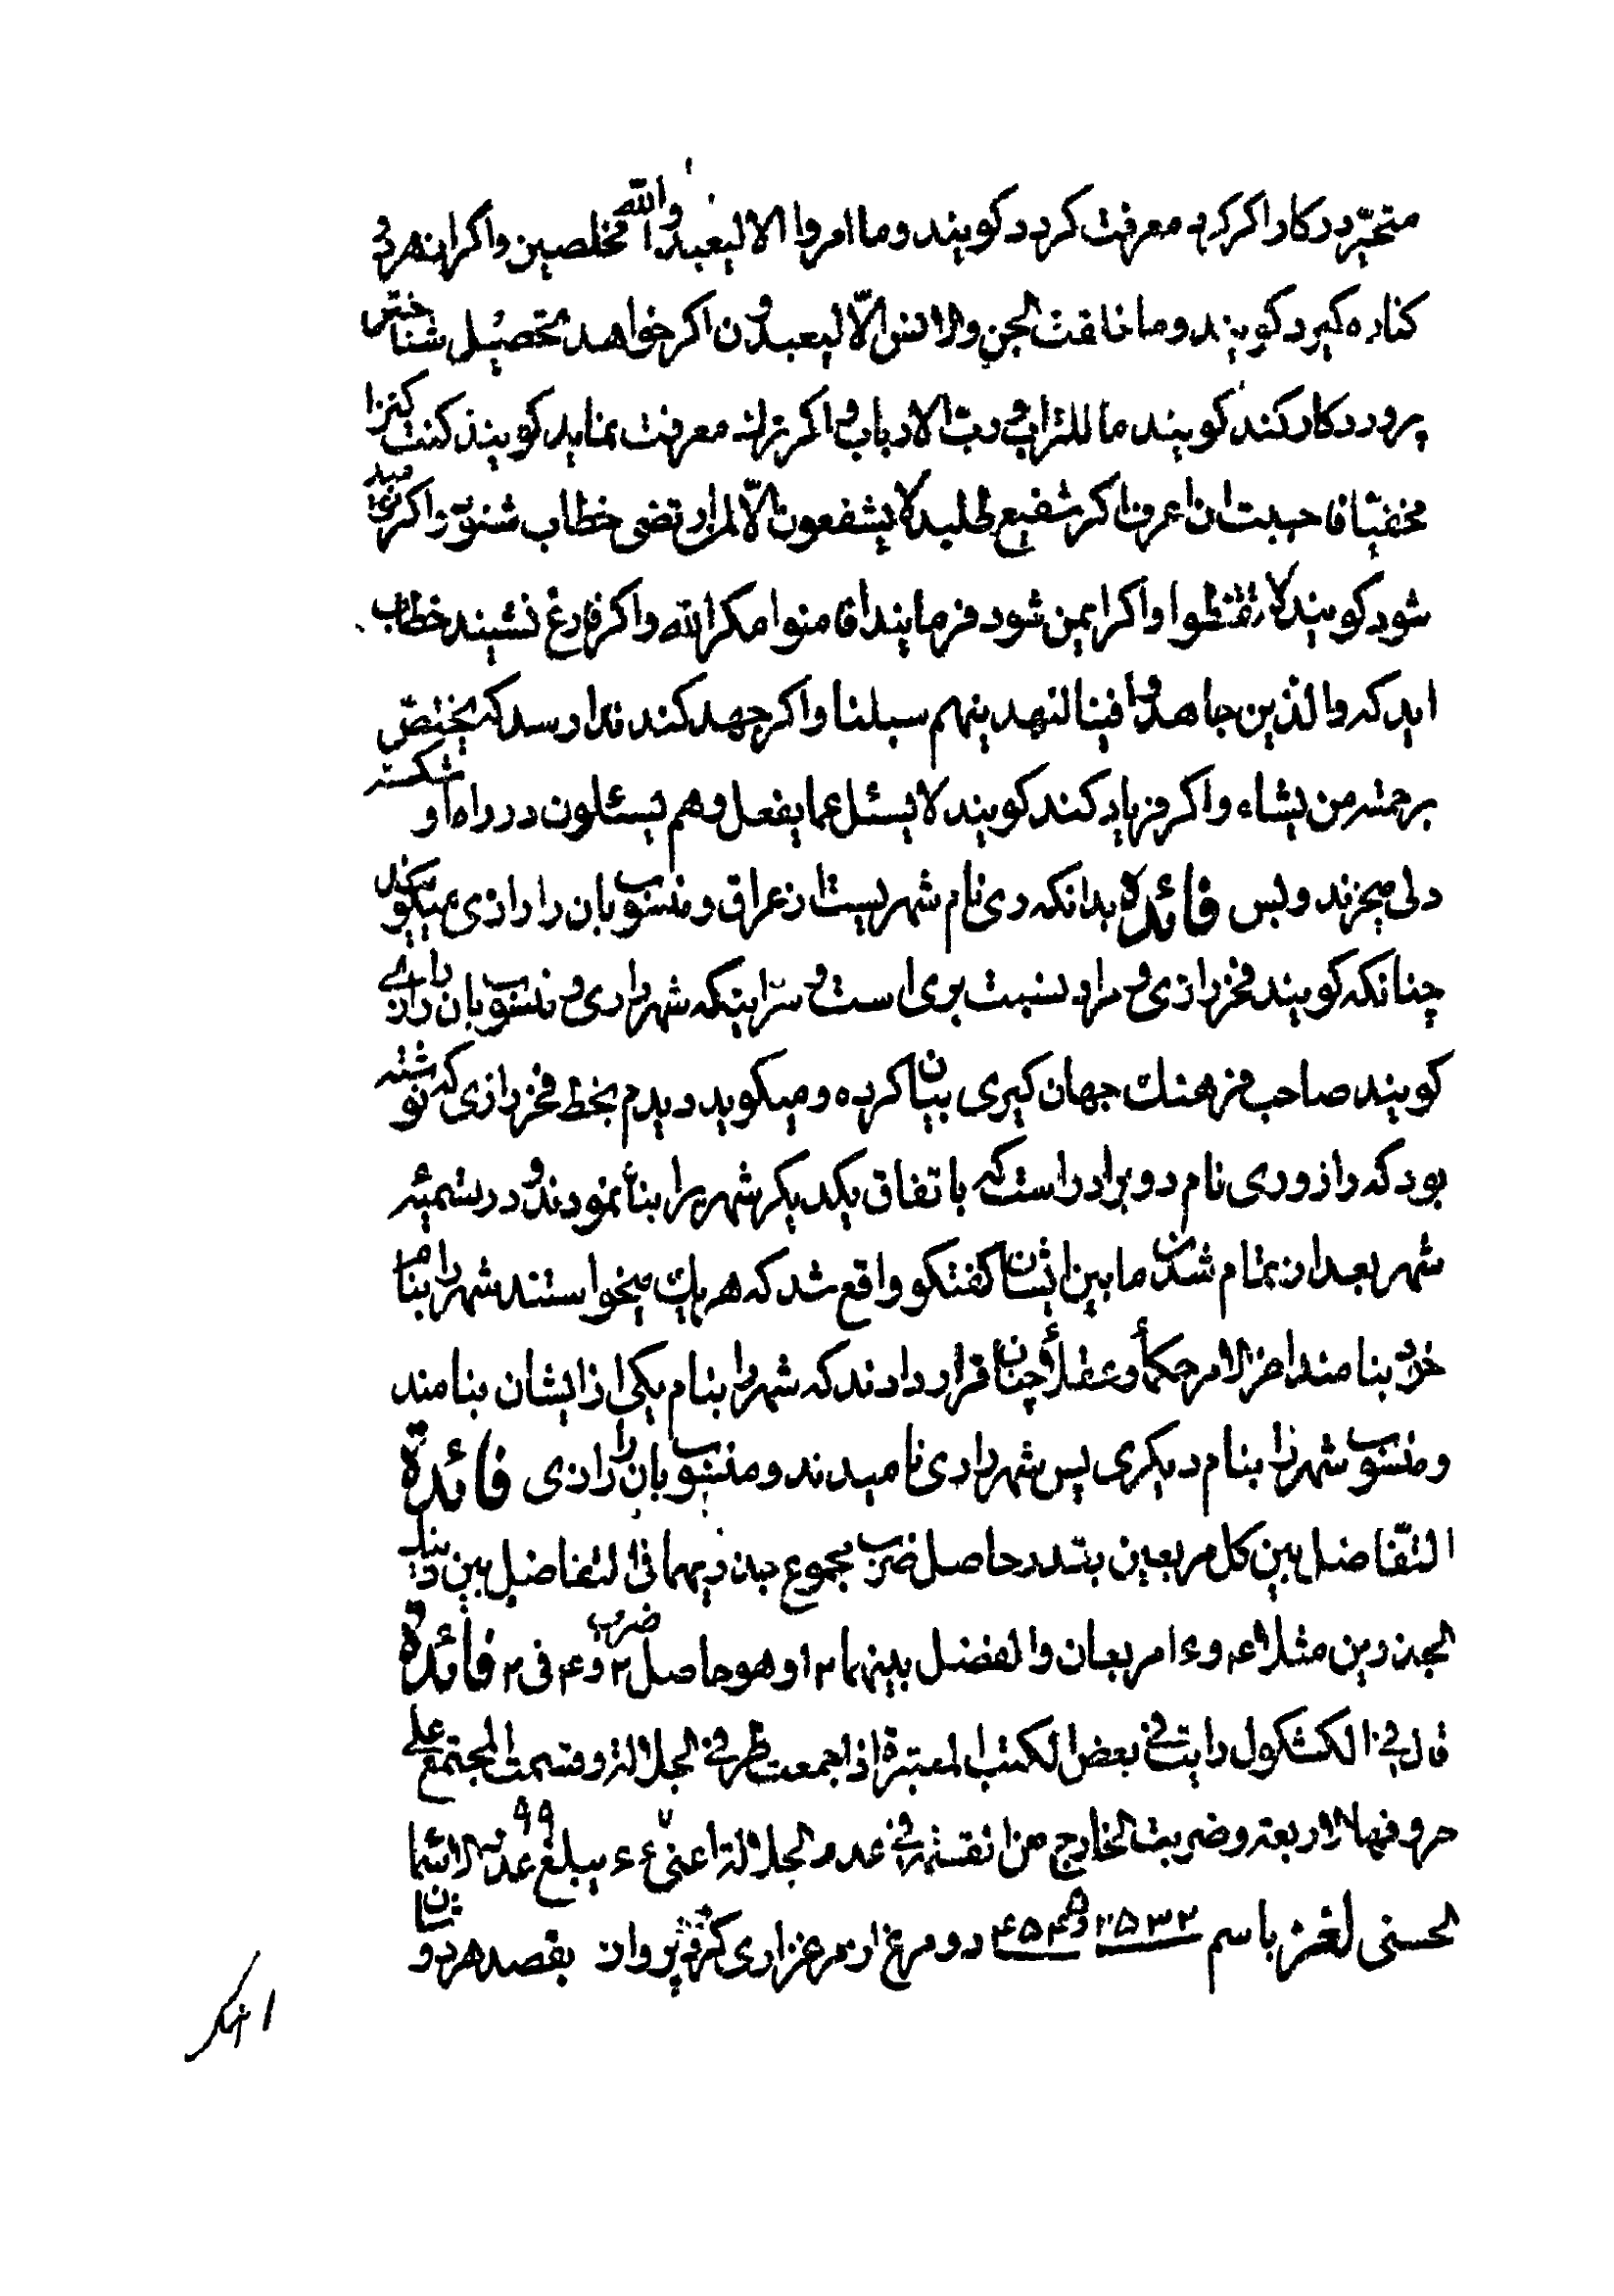 متحیّر در کار اگر کرد معرفت کردد کویند وما امروا الا لیعبدوا الله مخلصین واکر از هر دو
کناره کیرد کویند وما خلقت الجن والانس الّا لیعبدون اکر خواهد تحصیل شناختن
پروردکار کند کویند ما للتراب و ربّ الارباب و اکر ترک معرفت نماید کویند کنت کنزا
مخفیّا فاحببت ان اعرف اکر شفیع طلبد لا یشفعون الّا لمن ارتضی خطاب شنود و اکر نومید
شود کویند لا تقنطوا واکر ایمن شود فرمایند افامنوا مکر الله واکر فارغ نشیند خطاب
اید که والذین جاهدوا فینا لنهدینهم سبلنا واکر جهد کند ندا رسد که یختصّ
برحمته من یشاء واکر فریاد کند کویند لا یسئل عما یفعل وهم یسئلون در راه او شکسته
دلی میخرند وبس فائدة بدانکه ری نام شهریست از عراق ومنسوب بان را رازی میکویند
چنانکه کویند فخر رازی و مراد نسبت بری است و سرّ اینکه شهر را ری و منسوب بان را رازی
کویند صاحب فرهنك جهان کیری بیان کرده ومیکوید دیدم بخط فخر رازی که نوشته
بود که راز وری نام دو برادر است که باتفاق یکدیکر شهر را بناء نمودند و در تسمیه
شهر بعد از تمام شدن ما بین ایشان کفتکو واقع شد که هر یك میخواستند شهر را بنام
خود بنامند اخر الامر حکماء وعقلاء چنان قرار دادند که شهر را بنام یکی از ایشان بنامند
ومنسوب شهر را بنام دیکری پس شهر را ری نامیدند ومنسوب بان را رازی فائدة
التفاضل بین کل مربعین بقدر حاصل ضرب مجموع جذریهما فی التفاضل بین ذینك
الجذرین مثلا ۱۶ و ۴ مربعان والفضل بینهما ۱۲ وهو حاصل ضرب ۲ و ۴ فی ۲ فائدة
قال فی الکشکول رایت فی بعض الکتب المعتبرة اذا جمعت طرفی الجلالة وقسمت المجتمع علی
حروفها الاربعة وضربت الخارج من القسمة فی عدد الجلالة اعنی ۶۶ یبلغ ۹۹ عدد الاسماء
الحسنی لغز باسم ۲۵۳۲ و ۴۵۴۵ دو مرغ از مرغزاری کرفته پرواز بقصد هر دو شان